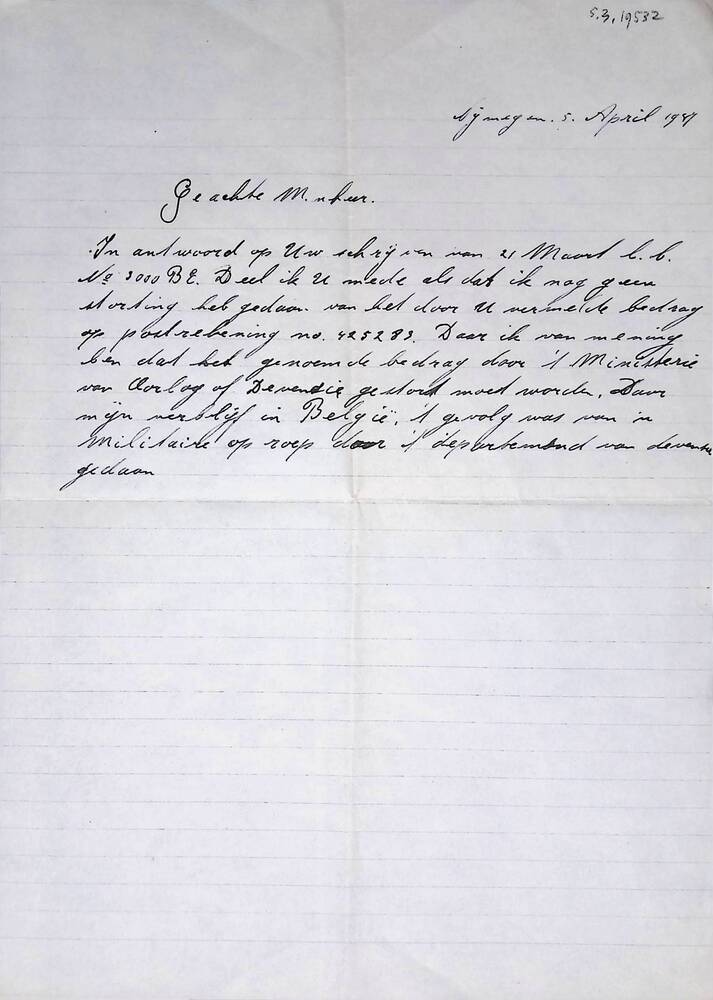 5.3.19532
Nijmegen. 5. April 1937
Geachte Mnheer.
In antwoord op Uw schrijven van 21 Maart l.b.
No 3000 BE. Deel ik U mede als dat ik nog geen
storting heb gedaan van het door U vermelde bedrag
op postrekening no. 425283. Daar ik van mening
ben dat het genoemde bedrag door 't Ministerie
van Oorlog of Devensie gestort moet worden, Daar
mijn verblijf in België, 't gevolg was van 'n
Militaire op roep door 't departemend van devensie
gedaan